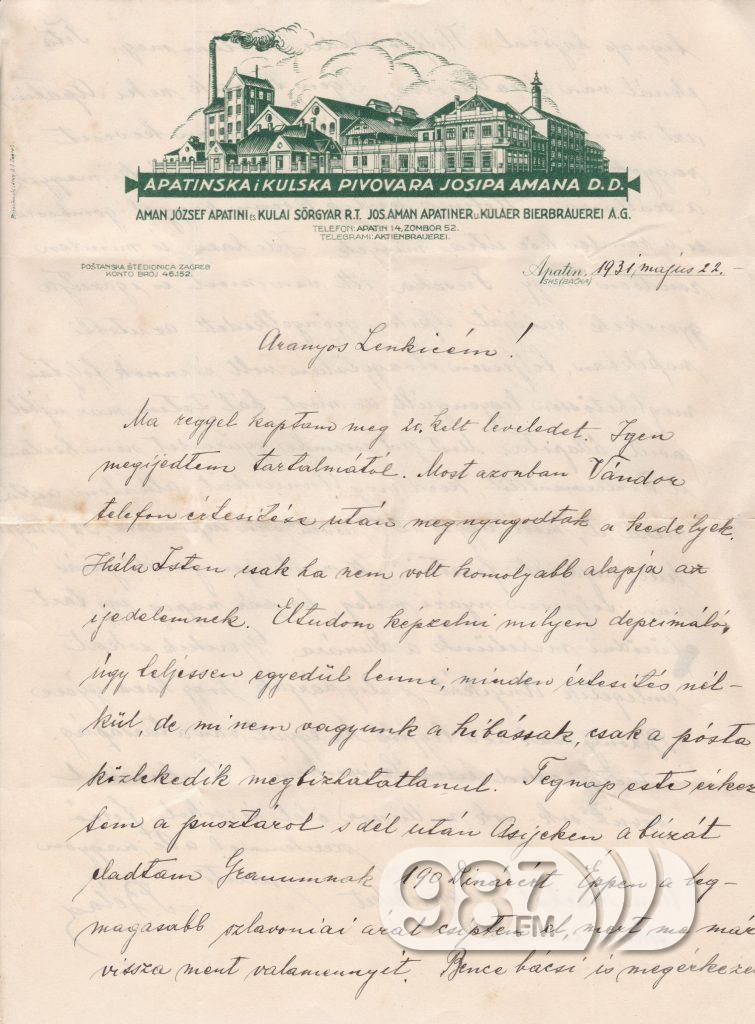 APATINSKA i KULSKA PIVOVARA JOSIPA AMANA D. D.
AMAN JÓZSEF APATINI ÉS KULAI SÖRGYÁR R.T. JOS. AMAN APATINER U. KULAER BIERBRAUEREI A.G.
TELEFON: APATIN 14, ZOMBOR 52.
TELEGRAMI: AKTIENBRAUEREI.
POŠTANSKA ŠTEDIONICA ZAGREB
KONTO BROJ 46.152.
Apatin, 1931, május 22.-
SHS (BAČKA)
Aranyos Lenkicém!
Ma reggel kaptam meg 20. kelt leveledet. Igen
megijedtem tartalmától. Most azonban Vándor
telefon értesitése után megnyugodtak a kedélyek.
Hála Isten csak ha nem volt komolyabb alapja az
ijedelemnek. Eltudom képzelni milyen deprimáló,
úgy teljessen egyedül lenni, minden értesités nél-
kül, de mi nem vagyunk a hibássak, csak a pósta
közlekedik megbizhatatlanul. Tegnap este érkez
tem a pusztáról s dél után Osijeken a búzát
eladtam Granumnak 190 Dinárért. Éppen a leg-
magasabb szlavoniai árát csiptem el, mert ma már
vissza ment valamennyit. Bence bácsi is megérkeze
987 FM